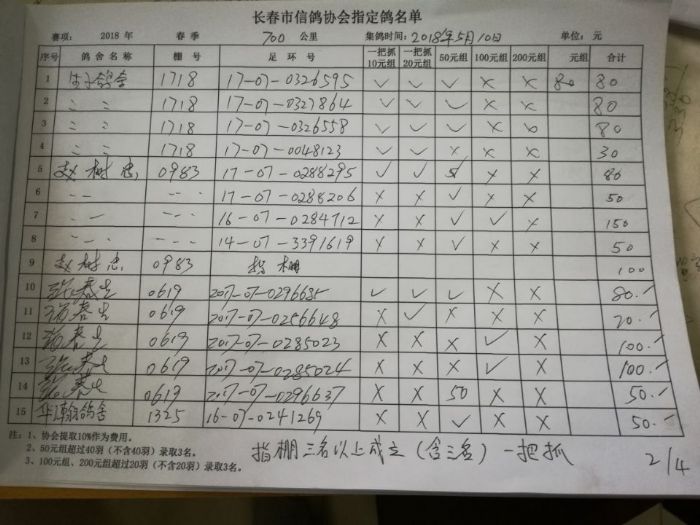 长春市信鸽协会指定鸽名单
赛项: 2018 年 春 季 700 公里 集鸽时间: 2018年5月10日 单位: 元
序号 鸽 舍 名 称 棚 号 足 环 号 一把抓10元组 一把抓20元组 50元组 100元组 200元组 元组 合计
1 鸽舍 1718 17-07-0326595 ✓ ✓ ✓ × × 80 80
2 〃 〃 1718 17-07-0327864 ✓ ✓ ✓ × × 80
3 〃 〃 1718 17-07-0326558 ✓ ✓ ✓ × × 80
4 〃 〃 1718 17-07-0048123 ✓ ✓ × × × 30
5 赵树忠 0983 17-07-0288295 ✓ ✓ ✓ × × 80
6 17-07-0288206 × × ✓ × × 50
7 16-07-0284712 × × ✓ ✓ × 150
8 14-07-3391619 × × ✓ × × 50
9 赵树忠 0983 指棚 100
10 张春生 0619 2017-07-0296635 ✓ ✓ ✓ × × 80.-
11 张春生 0619 2017-07-0256648 × ✓ × × × 20.-
12 张春生 0619 2017-07-0285023 × × × ✓ × 100.-
13 张春生 0619 2017-07-0285024 × × × ✓ × 100.-
14 张春生 0619 2017-07-0296637 × × 50 × × 50.-
15 华瀚鸽舍 1325 16-07-0241269 × × ✓ × × 50.-
注: 1、协会提取10%作为费用。
2、50元组超过40羽（不含40羽）录取3名。
3、100元组、200元组超过20羽（不含20羽）录取3名。
指棚三名以上成立(含三名) 一把抓
2/4